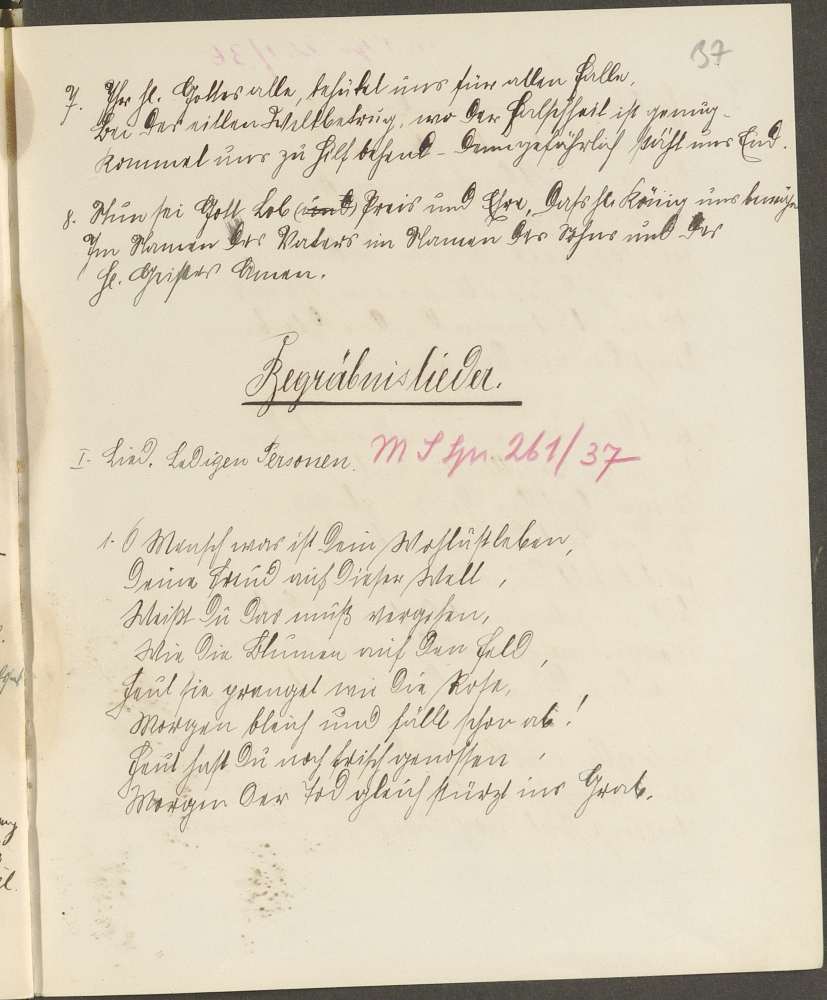 37
7. Ihr hl. Gottes alle, behütet uns für allen Falle,
Bei der eitlen Weltbetrug, wo der Falschheit ist genug-
Kommet uns zu Hilf behend - Denn gefährlich steht uns End.
8. Nun sei Gott Lob (und) Preis und Ehre, Dass hl. König uns bewahre
Im Namen des Vaters im Namen des Sohns und des
hl. Geistes Amen.
Begräbnislieder.
I. Lied. Ledigen Personen. M S Spr. 261/37
1. O Mensch was ist dein Wohlustleben,
Deine Freud auf dieser Welt,
Weißt du das muß vergehen,
Wie die Blumen auf den Feld,
Heut sie pranget wie die Rose,
Morgen bleich und fällt schon ab!
Heut hast du noch frisch genossen,
Morgen der Tod gleich stürzt ins Grab.